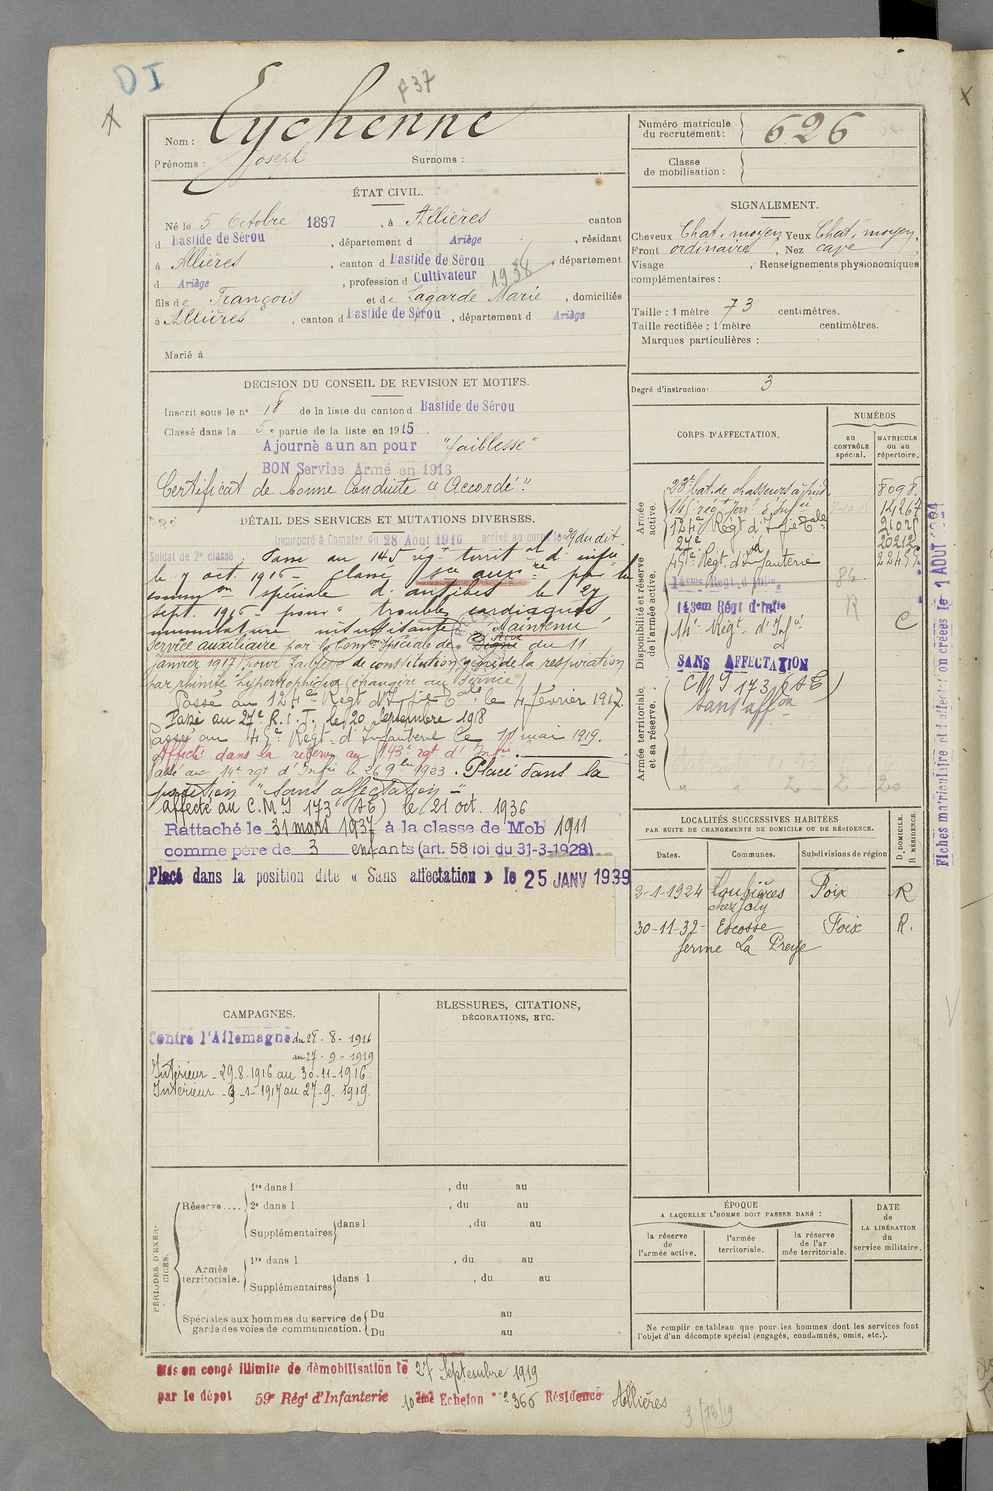 DI
f 37
Nom : Eychenne
Prénoms : Joseph Surnoms :
Numéro matricule du recrutement : 626
Classe de mobilisation :
ÉTAT CIVIL.
Né le 5 Octobre 1897, à Allières canton
d Bastide de Sérou, département d Ariège, résidant
à Allières, canton d Bastide de Sérou, département
d Ariège, profession d Cultivateur 1938
fils de François et de Lagarde Marie, domiciliés
à Allières, canton d Bastide de Sérou, département d Ariège
Marié à
SIGNALEMENT.
Cheveux Chat. moyen Yeux Chat. moyen,
Front ordinaire, Nez cave
Visage , Renseignements physionomiques
complémentaires :
Taille : 1 mètre 73 centimètres.
Taille rectifiée : 1 mètre centimètres.
Marques particulières :
Degré d'instruction : 3
DECISION DU CONSEIL DE REVISION ET MOTIFS.
Inscrit sous le n° 18 de la liste du canton d Bastide de Sérou
Classé dans la 5e partie de la liste en 1915.
Ajourné a un an pour "faiblesse"
BON Service Armé en 1916
Certificat de bonne Conduite "Accordé".
DÉTAIL DES SERVICES ET MUTATIONS DIVERSES.
Incorporé à Compter du 28 Aout 1916 arrivé au corps le 29 du dit
Soldat de 2e classe. Passé au 145 rég. territ al d'infie
le 7 oct. 1916 - Classé sce auxre par la
common spéciale d'antibes le 27
sept. 1916 pour " troubles cardiaques
musculature insuffisante Maintenu
Service auxiliaire par la Common Spéciale de du 11
janvier 1917 pour faiblesse de constitution, gêne de la respiration
par rhinite hypertrophique (étrangère au Service)
Passé au 124e Régt d'Ie Tale le 4 février 1917.
Passé au 27e R.I.T. le 20 Septembre 1918
Passé au 49e Régt d'Infanterie le 10 mai 1919.
Affecté dans la réserve au 143e rgt d'Infie
Passé au 14e rgt d'Infie le 26 9bre 1923. Placé dans la
position "sans affectation" -
affecté au C.M.I 173 (AE) le 21 oct. 1936
Rattaché le 31 mars 1937 à la classe de Mob 1911
comme père de 3 enfants (art. 58 loi du 31-3-1928)
Placé dans la position dite « Sans affectation » le 25 JANV 1939
CORPS D'AFFECTATION.
NUMÉROS
au CONTRÔLE spécial.
MATRICULE ou au répertoire.
Armée active.
Disponibilité et réserve de l'armée active.
Armée territoriale et sa réserve.
23e bat. de chasseurs à pied 8098
145 régt terr. d'Infie 14267
124e Régt d'Ie Tale 21021
27e 20212
49e Régt d'Infanterie 22457
14eme Régt d'Infie 84
143em Régt d'Infie R
14e Régt d'Infie C
SANS AFFECTATION
C M I 173 (AE)
sans affon
Fiches matriculaire et d'affectation créées le 1 AOUT
LOCALITÉS SUCCESSIVES HABITÉES
PAR SUITE DE CHANGEMENTS DE DOMICILE OU DE RÉSIDENCE.
Dates. Communes. Subdivisions de région D. DOMICILE. R. RÉSIDENCE.
2-1-1924 Loubières Foix R
chez Joly
30-11-32- Escosse Foix R.
ferme La Preye
CAMPAGNES.
Contre l'Allemagne du 29-8-1916
au 27-9-1919
Intérieur - 29-8-1916 au 30-11-1916
Intérieur - 9-1-1917 au 27-9-1919.
BLESSURES, CITATIONS,
DÉCORATIONS, ETC.
PÉRIODES D'EXERCICES.
Réserve.... 1re dans l , du au
2e dans l , du au
Supplémentaires dans l , du au
Armée territoriale. 1re dans l , du au
Supplémentaires dans l , du au
Spéciales aux hommes du service de garde des voies de communication. Du au
Du au
ÉPOQUE
A LAQUELLE L'HOMME DOIT PASSER DANS :
la réserve de l'armée active.
l'armée territoriale.
la réserve de l'armée territoriale.
DATE de LA LIBÉRATION du service militaire.
Ne remplir ce tableau que pour les hommes dont les services font
l'objet d'un décompte spécial (engagés, condamnés, omis, etc.).
Mis en congé illimité de démobilisation le 27 Septembre 1919
par le dépôt 59e Régt d'Infanterie 10ème Echelon n° 366 Résidence Allières